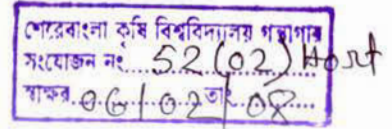 শেরেবাংলা কৃষি বিশ্ববিদ্যালয় গন্থাগার
সংযোজন নং 52(02) Hort
স্বাক্ষর 06/02 তাং 08